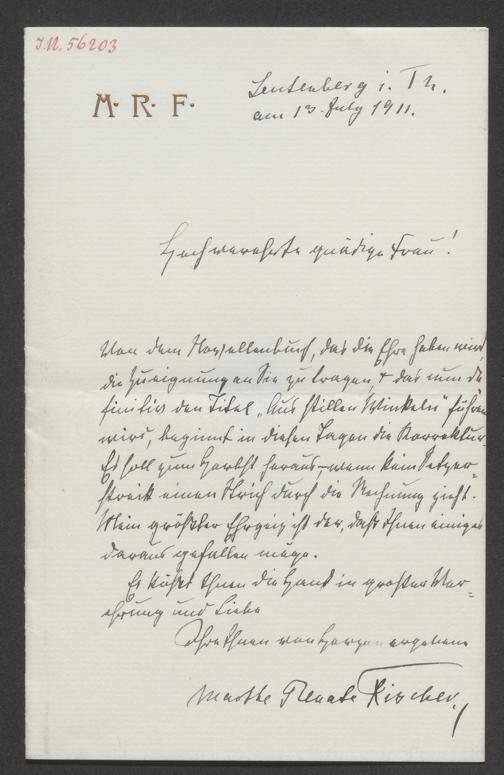 J.N. 56203
M. R. F.
Leutenberg i. Th.
am 13. July 1911.
Hochverehrte gnädige Frau!
Von dem Novellenbuch, das die Ehre haben wird,
die Zueignung an Sie zu tragen, + das nun de
finitiv den Titel „Aus stillen Winkeln" führen
wird, beginnt in diesen Tagen die Korrektur.
Es soll zum Herbst heraus – wenn kein Setzer-
streik einen Strich durch die Rechnung zieht.
Mein größter Ehrgeiz ist der, daß Ihnen einiges
daraus gefallen möge.
Es küßt Ihnen die Hand in großer Ver-
ehrung und Liebe
Ihre Ihnen von Herzen ergebene
Marthe Renate Fischer.